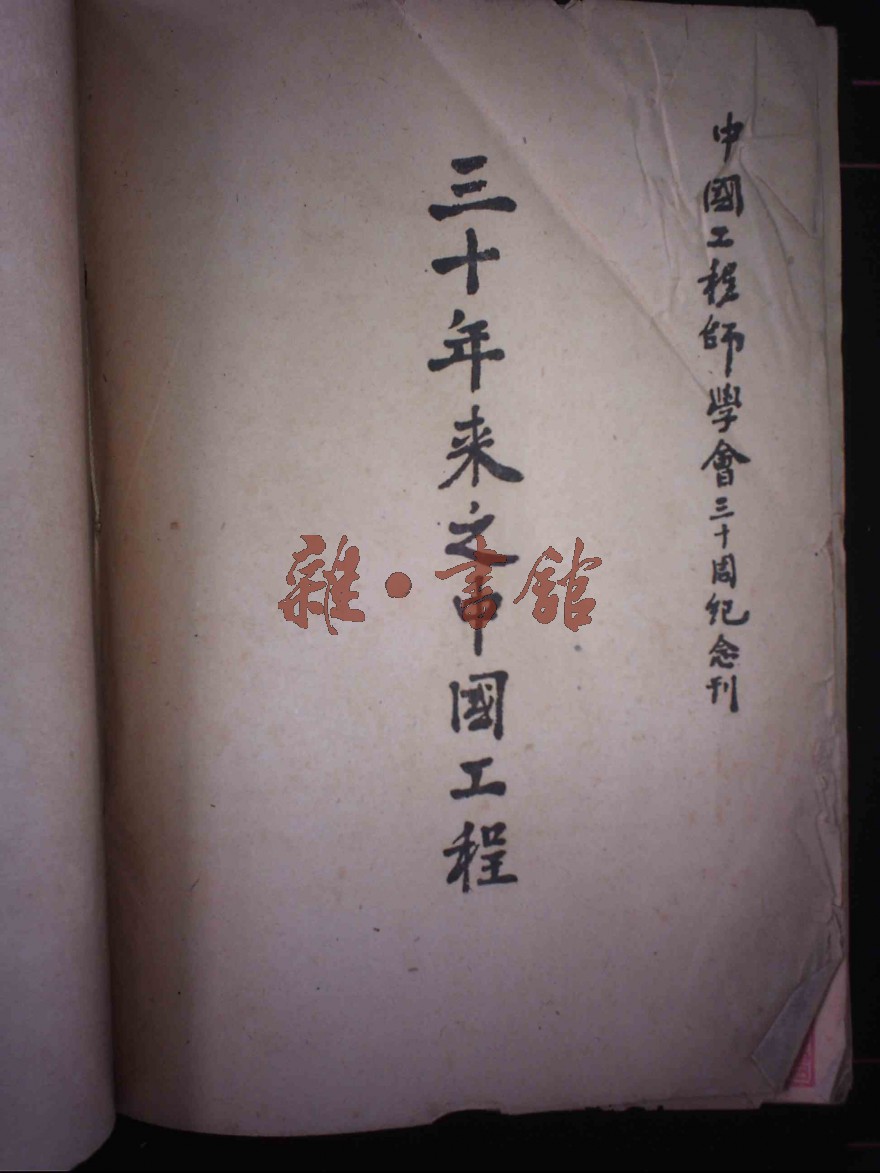 中國工程師學會三十周紀念刊
三十年来之中國工程
雜·書館